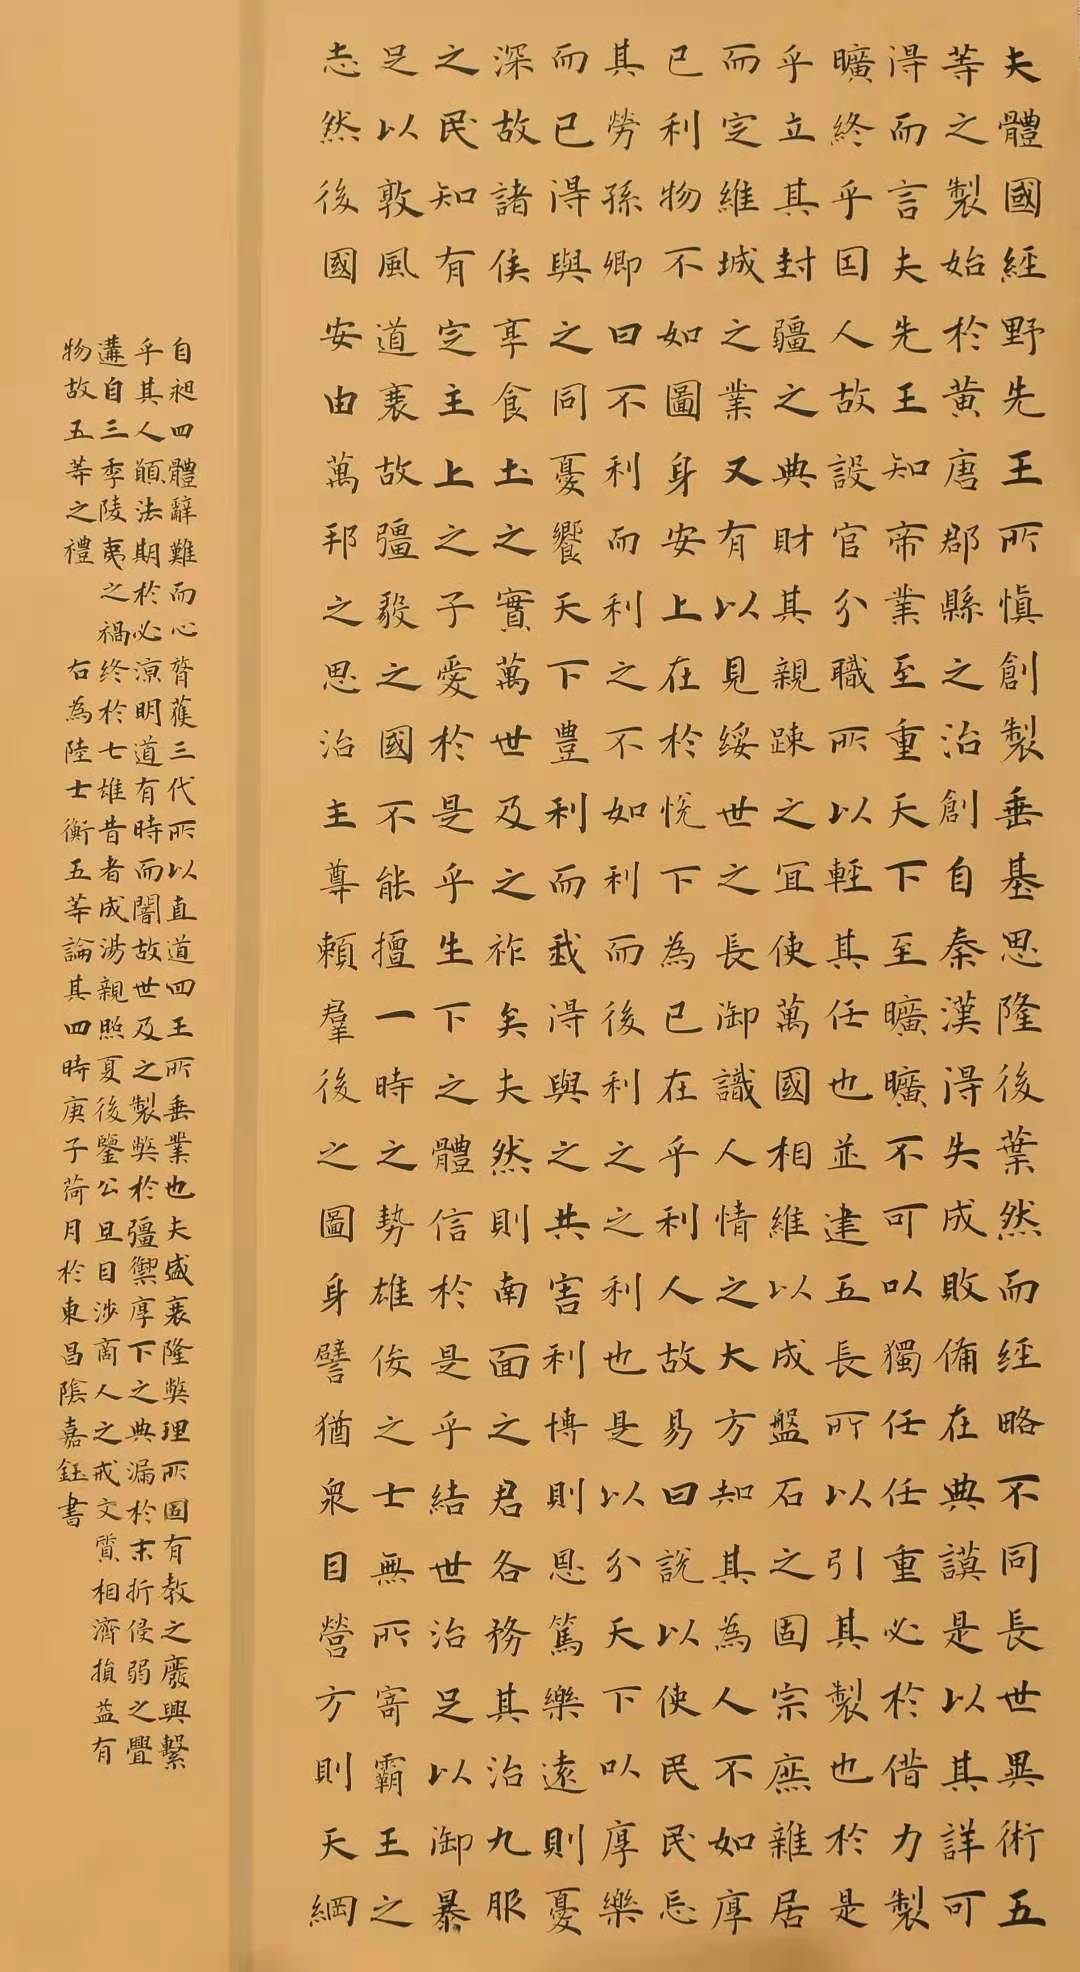 夫體國經野先王所慎創製垂基思隆後葉然而經略不同長世異術五
等之製始於黃唐郡縣之治創自秦漢得失成敗備在典謨是以其詳可
得而言夫先王知帝業至重天下至曠曠不可以獨任任重必於借力製
曠終乎因人故設官分職所以輕其任也並建五長所以引其製也於是
乎立其封疆之典財其親疎之宜使萬國相維以成盤石之固宗庶雜居
而定維城之業又有以見綏世之長御識人情之大方知其為人不如厚
已利物不如圖身安上在於悅下為已在乎利人故易曰說以使民民忘
其勞孫卿曰不利而利之不如利而後利之之利也是以分天下以厚樂
而已得與之同憂饗天下豐利而我得與之共害利博則恩篤樂遠則憂
深故諸侯享食土之實萬世及之祚矣夫然則南面之君各務其治九服
之民知有定主上之子愛於是乎生下之體信於是乎結世治足以御暴
足以敦風道衰故彊毅之國不能擅一時之勢雄俊之士無所寄霸王之
志然後國安由萬邦之思治主尊賴羣後之圖身譬猶衆目營方則天綱
自昶四體辭難而心膂獲三代所以直道四王所垂業也夫盛衰隆弊理所固有教之廢興繫
乎其人願法期於必涼明道有時而闇故世及之製弊於彊禦厚下之典漏於末折侵弱之釁
遘自三季陵夷之禍終於七雄昔者成湯親照夏後鑒公旦目涉商人之戒文質相濟損益有
物故五等之禮 右為陸士衡五等論其四時庚子荷月於東昌陰嘉鈺書